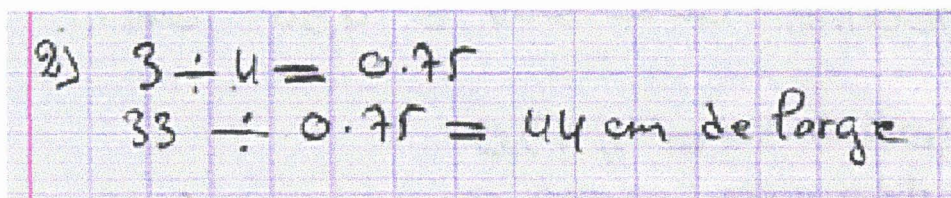 2) 3 ÷ 4 = 0.75
33 ÷ 0.75 = 44 cm de large